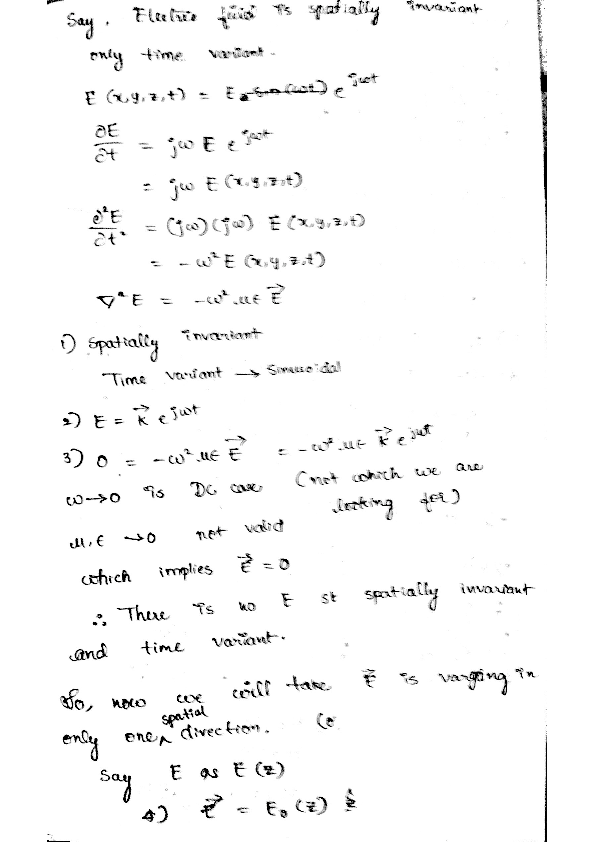 Say, Electric field is spatially invariant
only time variant.
E (x,y,z,t) = E e^{jωt}
∂E/∂t = jω E e^{jωt}
= jω E (x,y,z,t)
∂²E/∂t² = (jω)(jω) E (x,y,z,t)
= -ω² E (x,y,z,t)
∇²E = -ω² με E⃗
1) Spatially invariant
Time variant → Sinusoidal
2) E = K⃗ e^{jωt}
3) 0 = -ω² με E⃗ = -ω² με K⃗ e^{jωt}
ω→0 is DC case (not which we are
looking for)
μ,ε →0 not valid
which implies E⃗ = 0
∴ There is no E st spatially invariant
and time variant.
So, now we will take E⃗ is varying in
only one spatial direction.
Say E as E (z)
4) E⃗ = E₀ (z)